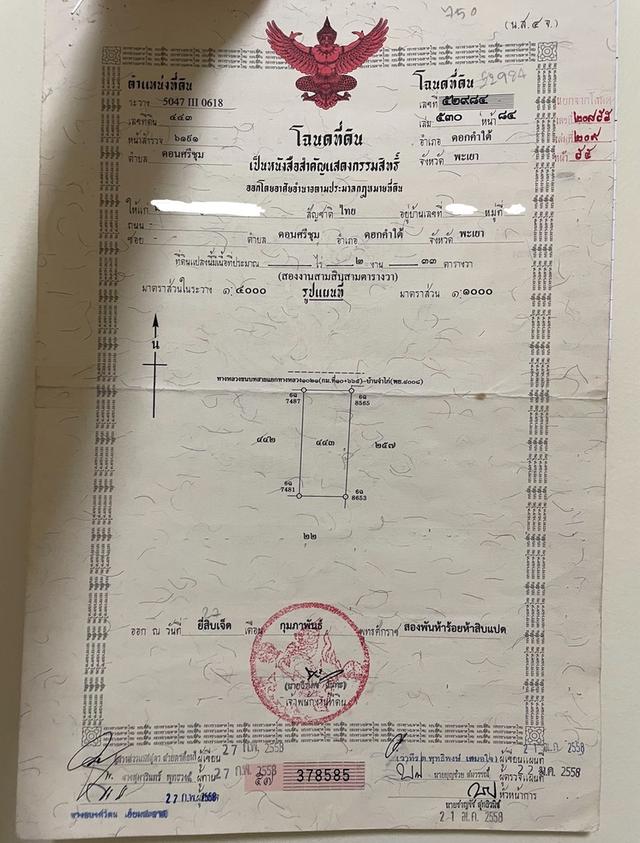 750
(น.ส.๔ จ.)
ตำแหน่งที่ดิน
ระวาง 5047 III 0618
เลขที่ดิน ๔๔๓
หน้าสำรวจ ๖๑๕๑
ตำบล ดอนศรีชุม
โฉนดที่ดิน
เลขที่ ๕๒๙๘๔
52984
เล่ม ๕๓๐ หน้า ๘๔
อำเภอ ดอกคำใต้
จังหวัด พะเยา
เลขที่ ๒๐๗๕๕
๒๐๙
หน้า ๕๕
โฉนดที่ดิน
เป็นหนังสือสำคัญแสดงกรรมสิทธิ์
ออกโดยอาศัยอำนาจตามประมวลกฎหมายที่ดิน
ให้แก่ สัญชาติ ไทย อยู่บ้านเลขที่ หมู่ที่
ถนน
ซอย - ตำบล ดอนศรีชุม อำเภอ ดอกคำใต้ จังหวัด พะเยา
ที่ดินแปลงนี้มีเนื้อที่ประมาณ - ไร่ ๒ งาน ๓๓ ตารางวา
(สองงานสามสิบสามตารางวา)
มาตราส่วนในระวาง ๑:๔๐๐๐ รูปแผนที่ มาตราส่วน ๑:๑๐๐๐
น
ทางหลวงชนบทสายแยกทางหลวง๑๐๒๑(กม.ที่๑๐+๖๖๕)-บ้านจำไก่(พย.๔๐๐๘)
6ฉ 7487
6ฉ 8565
๔๔๒ ๔๔๓ ๒๕๗
6ฉ 7481
6ฉ 8653
๒๒
27
ออก ณ วันที่ ยี่สิบเจ็ด เดือน กุมภาพันธ์ พุทธศักราช สองพันห้าร้อยห้าสิบแปด
เจ้าพนักงานที่ดิน
ผู้เขียน 27 ก.พ. 2558
27 ก.พ. 2558
27 ก.พ. 2558
378585
21 ม.ค. 2558
ผู้เขียนแผนที่
ผู้ตรวจแผนที่ 22 ม.ค. 2558
หัวหน้าการ
21 ม.ค. 2558